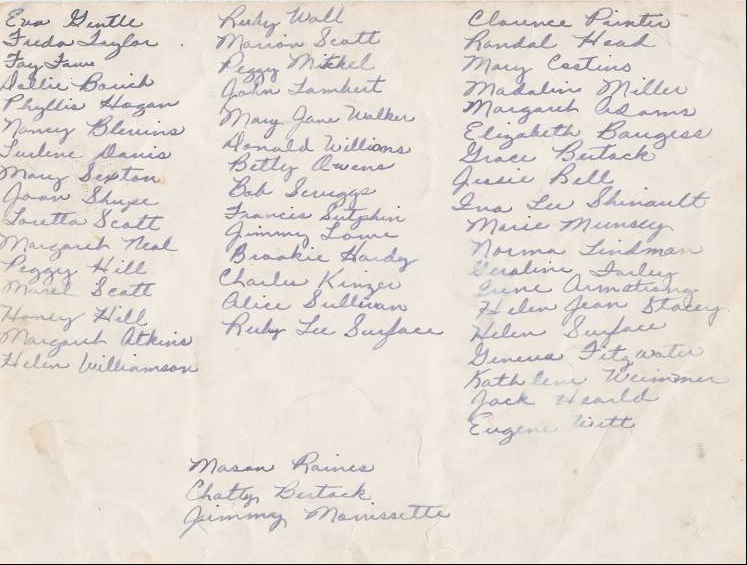 Eva Gentle
Freda Taylor
Fay
Dollie
Phyllis Hogan
Nancy Blevins
Lurlene Davis
Mary Sexton
Joan Shupe
Loretta Scott
Margaret Neal
Peggy Hill
Scott
Honey Hill
Margaret Atkins
Helen Williamson
Ruby Wall
Marion Scott
Peggy Mitchel
John Lambert
Mary Jane Walker
Donald Williams
Betty Owens
Bob Scruggs
Francis Sutphin
Jimmy Lowe
Brookie Hardy
Charles Kinzer
Alice Sullivan
Ruby Lee Surface
Clarence Painter
Randal Head
Mary
Madalin Miller
Margaret Adams
Elizabeth Burgess
Grace Bertock
Jessie Bell
Iva Lee Shinault
Marie Munsey
Norma Lindman
Geraline Farley
Irene Armstrong
Helen Jean Stacey
Helen Surface
Geneva Fitzwater
Kathlene Weimmer
Jack Hearld
Eugene Witt
Mason Raines
Chatty Bertock
Jimmy Morrissette